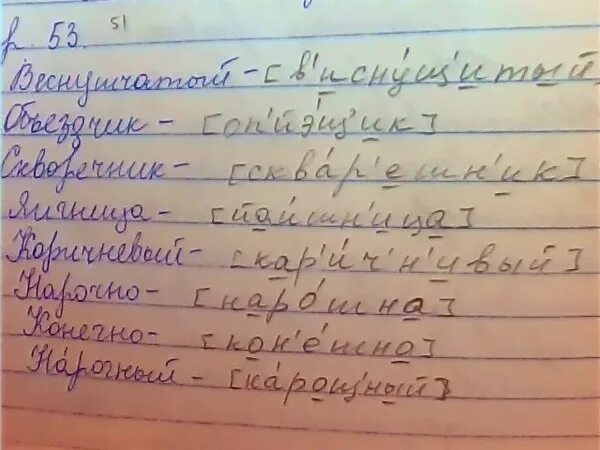 р. 53. 51
Веснушчатый - [в'иснýщ'итый
Объездчик - [оп'йэ́щ'ик]
Скворечник - [сквáр'ешн'ик]
Яичница - [йаи́шн'ица]
Коричневый - [кар'и́ч'н'ивый]
Нарочно - [наро́шна]
Конечно - [кон'е́шна]
На́рочный - [ка́рощный]